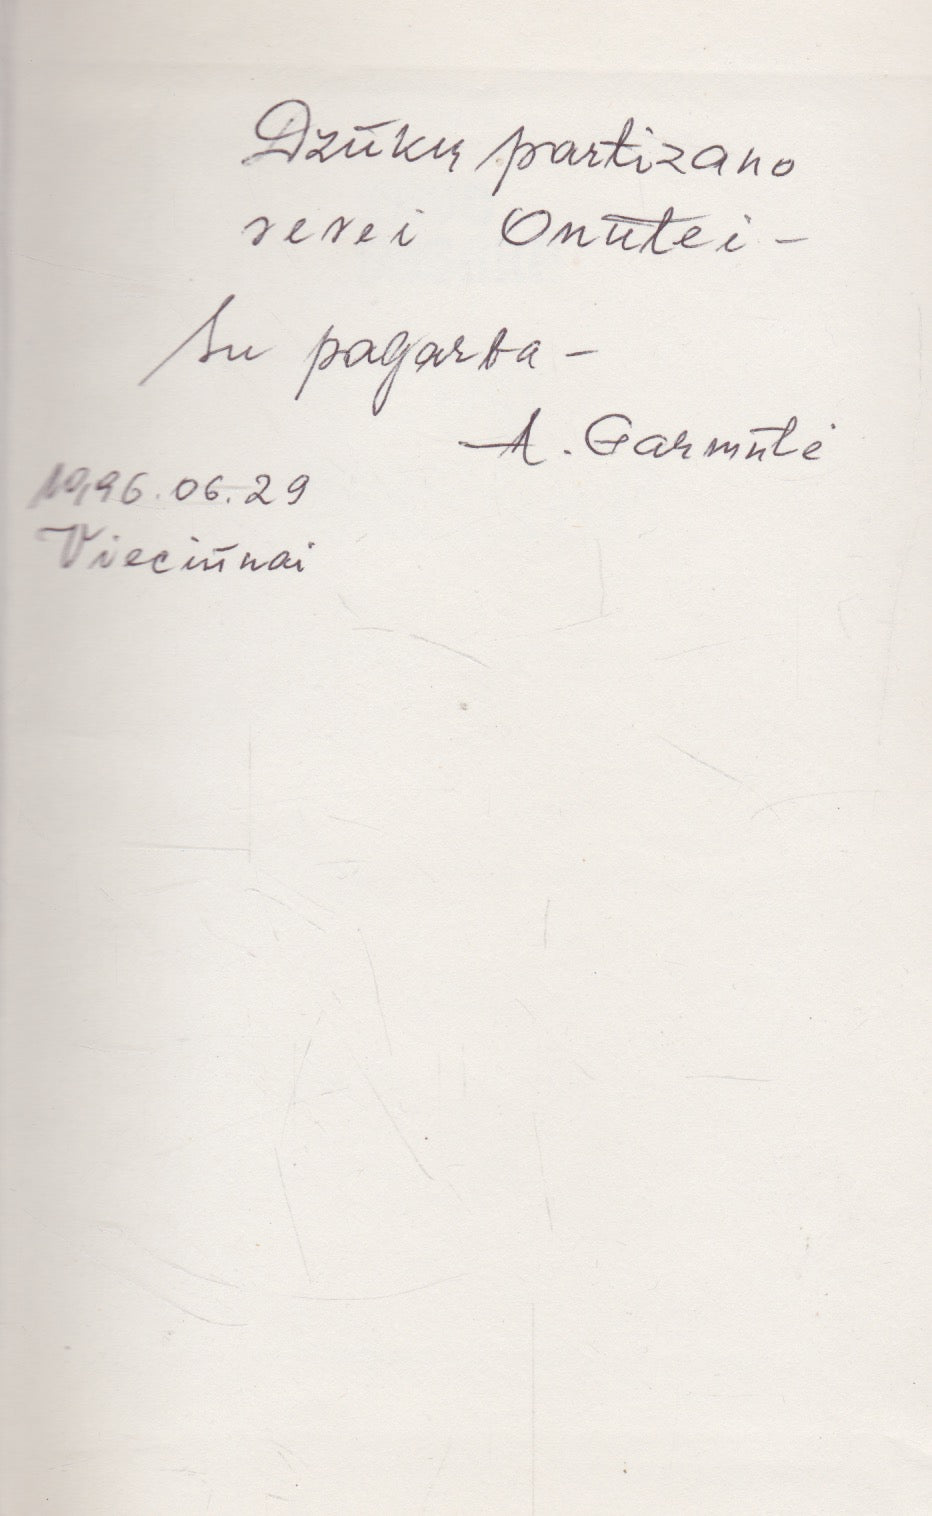 Dzūkų partizano
sesei Onutei –
Su pagarba –
A. Garmutė
1996.06.29
Viečiūnai